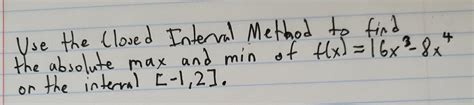 Use the Closed Interval Method to find
the absolute max and min of f(x) = 16x³ - 8x⁴
on the interval [-1,2].